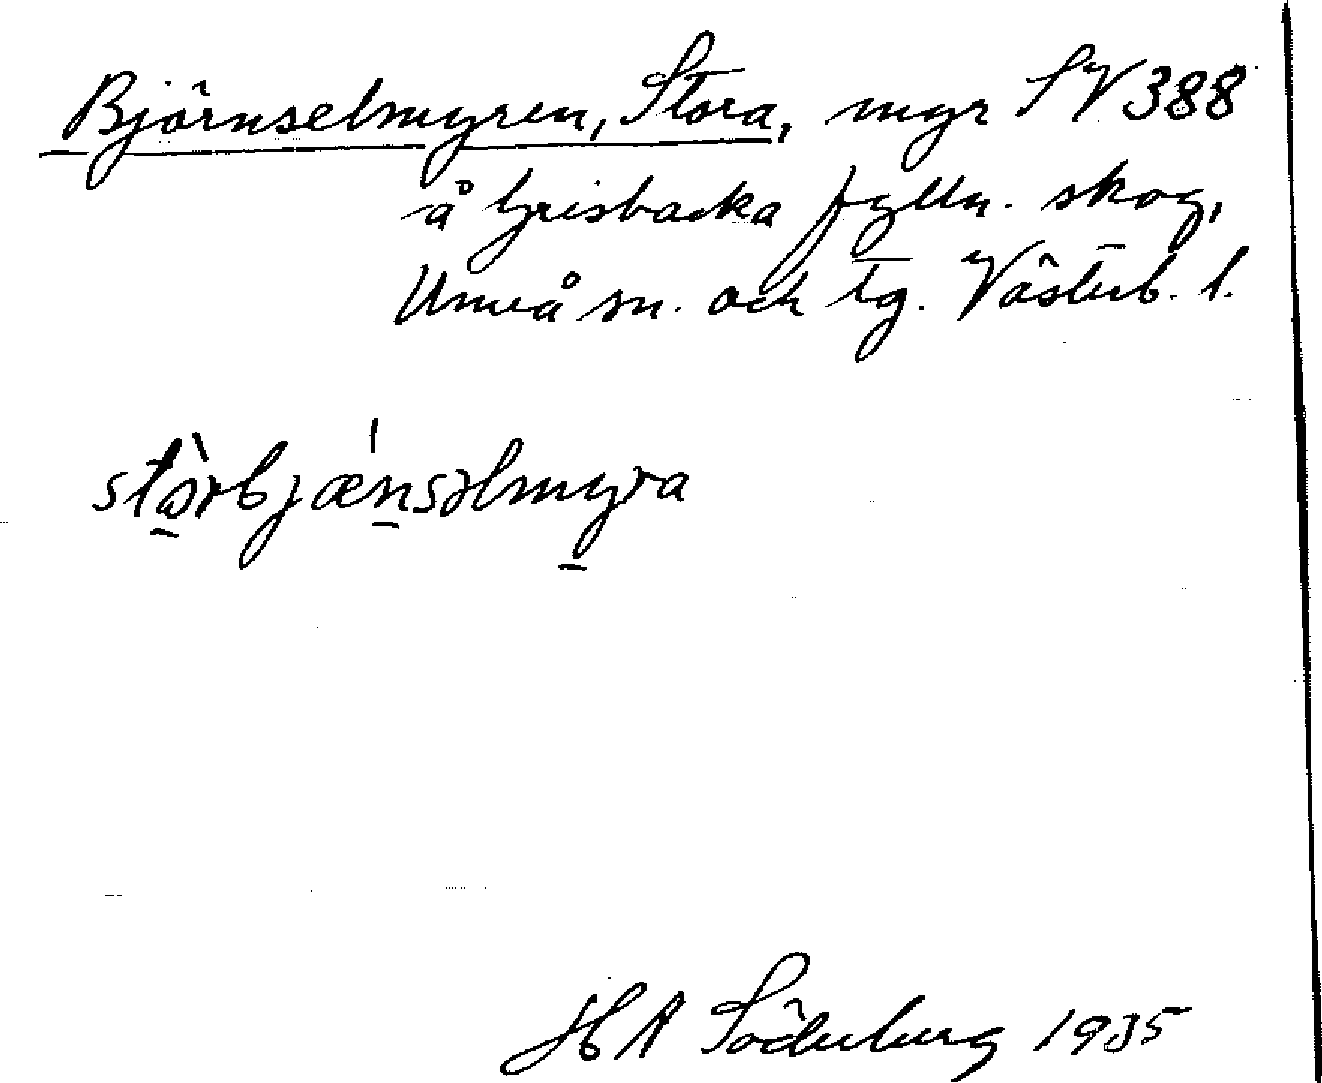 Björnselmyren, Stora, myr SV 388
å Grisbacka fylln. skog,
Umeå sn. och tg. Västerb. l.
stòrbjæ̀nsəlmyra
H A Söderberg 1935